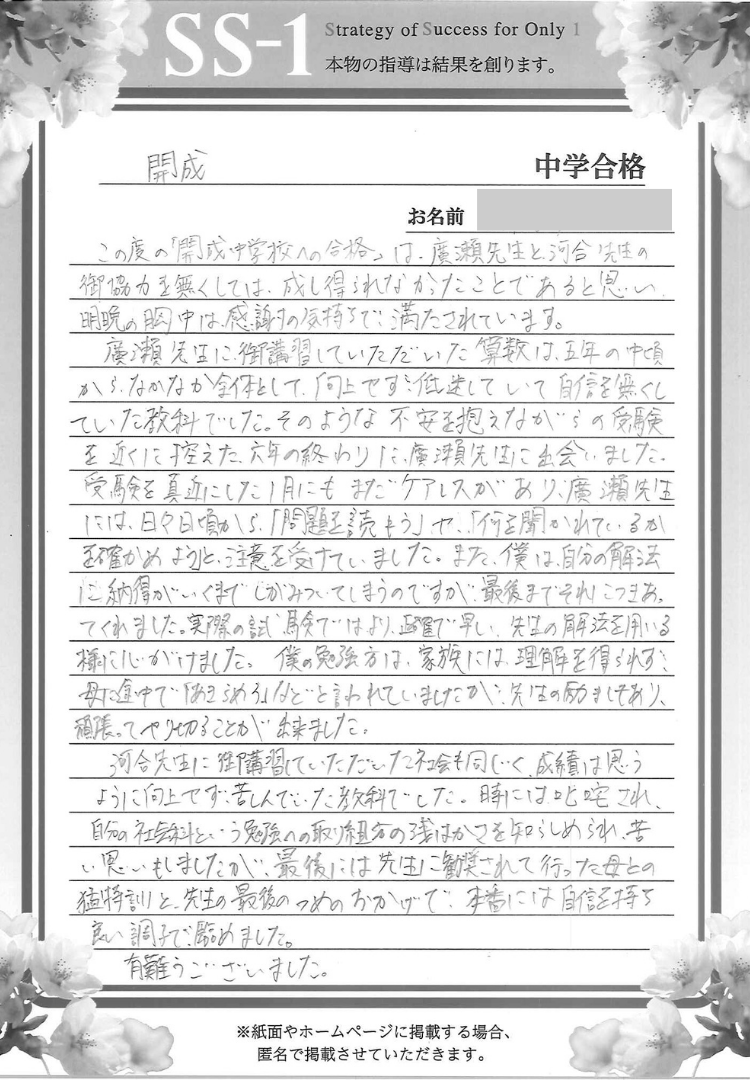 SS-1
Strategy of Success for Only 1
本物の指導は結果を創ります。
開成
中学合格
お名前
この度の「開成中学校への合格」は、廣瀬先生と、河合先生の
御協力を無くしては、成し得られなかったことであると思い、
明晩の胸中は、感謝の気持ちで満たされています。
廣瀬先生に、御講習していただいた算数は、五年の中頃
から、なかなか全体として、向上せず、低迷していて自信を無くし
ていた教科でした。そのような不安を抱えながらの受験
を近くに控えた、六年の終わりに、廣瀬先生に出会いました。
受験を真近にした1月にもまだケアレスがあり、廣瀬先生
には、日々日頃から、「問題を読もう」や、「何を聞かれているか
を確かめよう」と、注意を受けていました。また、僕は、自分の解法
に納得がいくまでしがみついてしまうのですが、最後までそれにつきあっ
てくれました。実際の試験ではより正確で早い、先生の解法を用いる
様に心がけました。僕の勉強方は、家族には、理解を得られず、
母に途中で「あきらめろ」などと言われていましたが、先生の励ましもあり、
頑張ってやり切ることが出来ました。
河合先生に御講習していただいた社会も同じく、成績は思う
ように向上せず、苦しんでいた教科でした。時には叱咤され、
自分の社会科という勉強への取り組方の浅はかさを知らしめられ、苦
い思いもしましたが、最後には先生に勧奨されて行った母との
猛特訓と、先生の最後のつめのおかげで、本番には自信を持ち
良い調子で、臨めました。
有難うございました。
※紙面やホームページに掲載する場合、
匿名で掲載させていただきます。